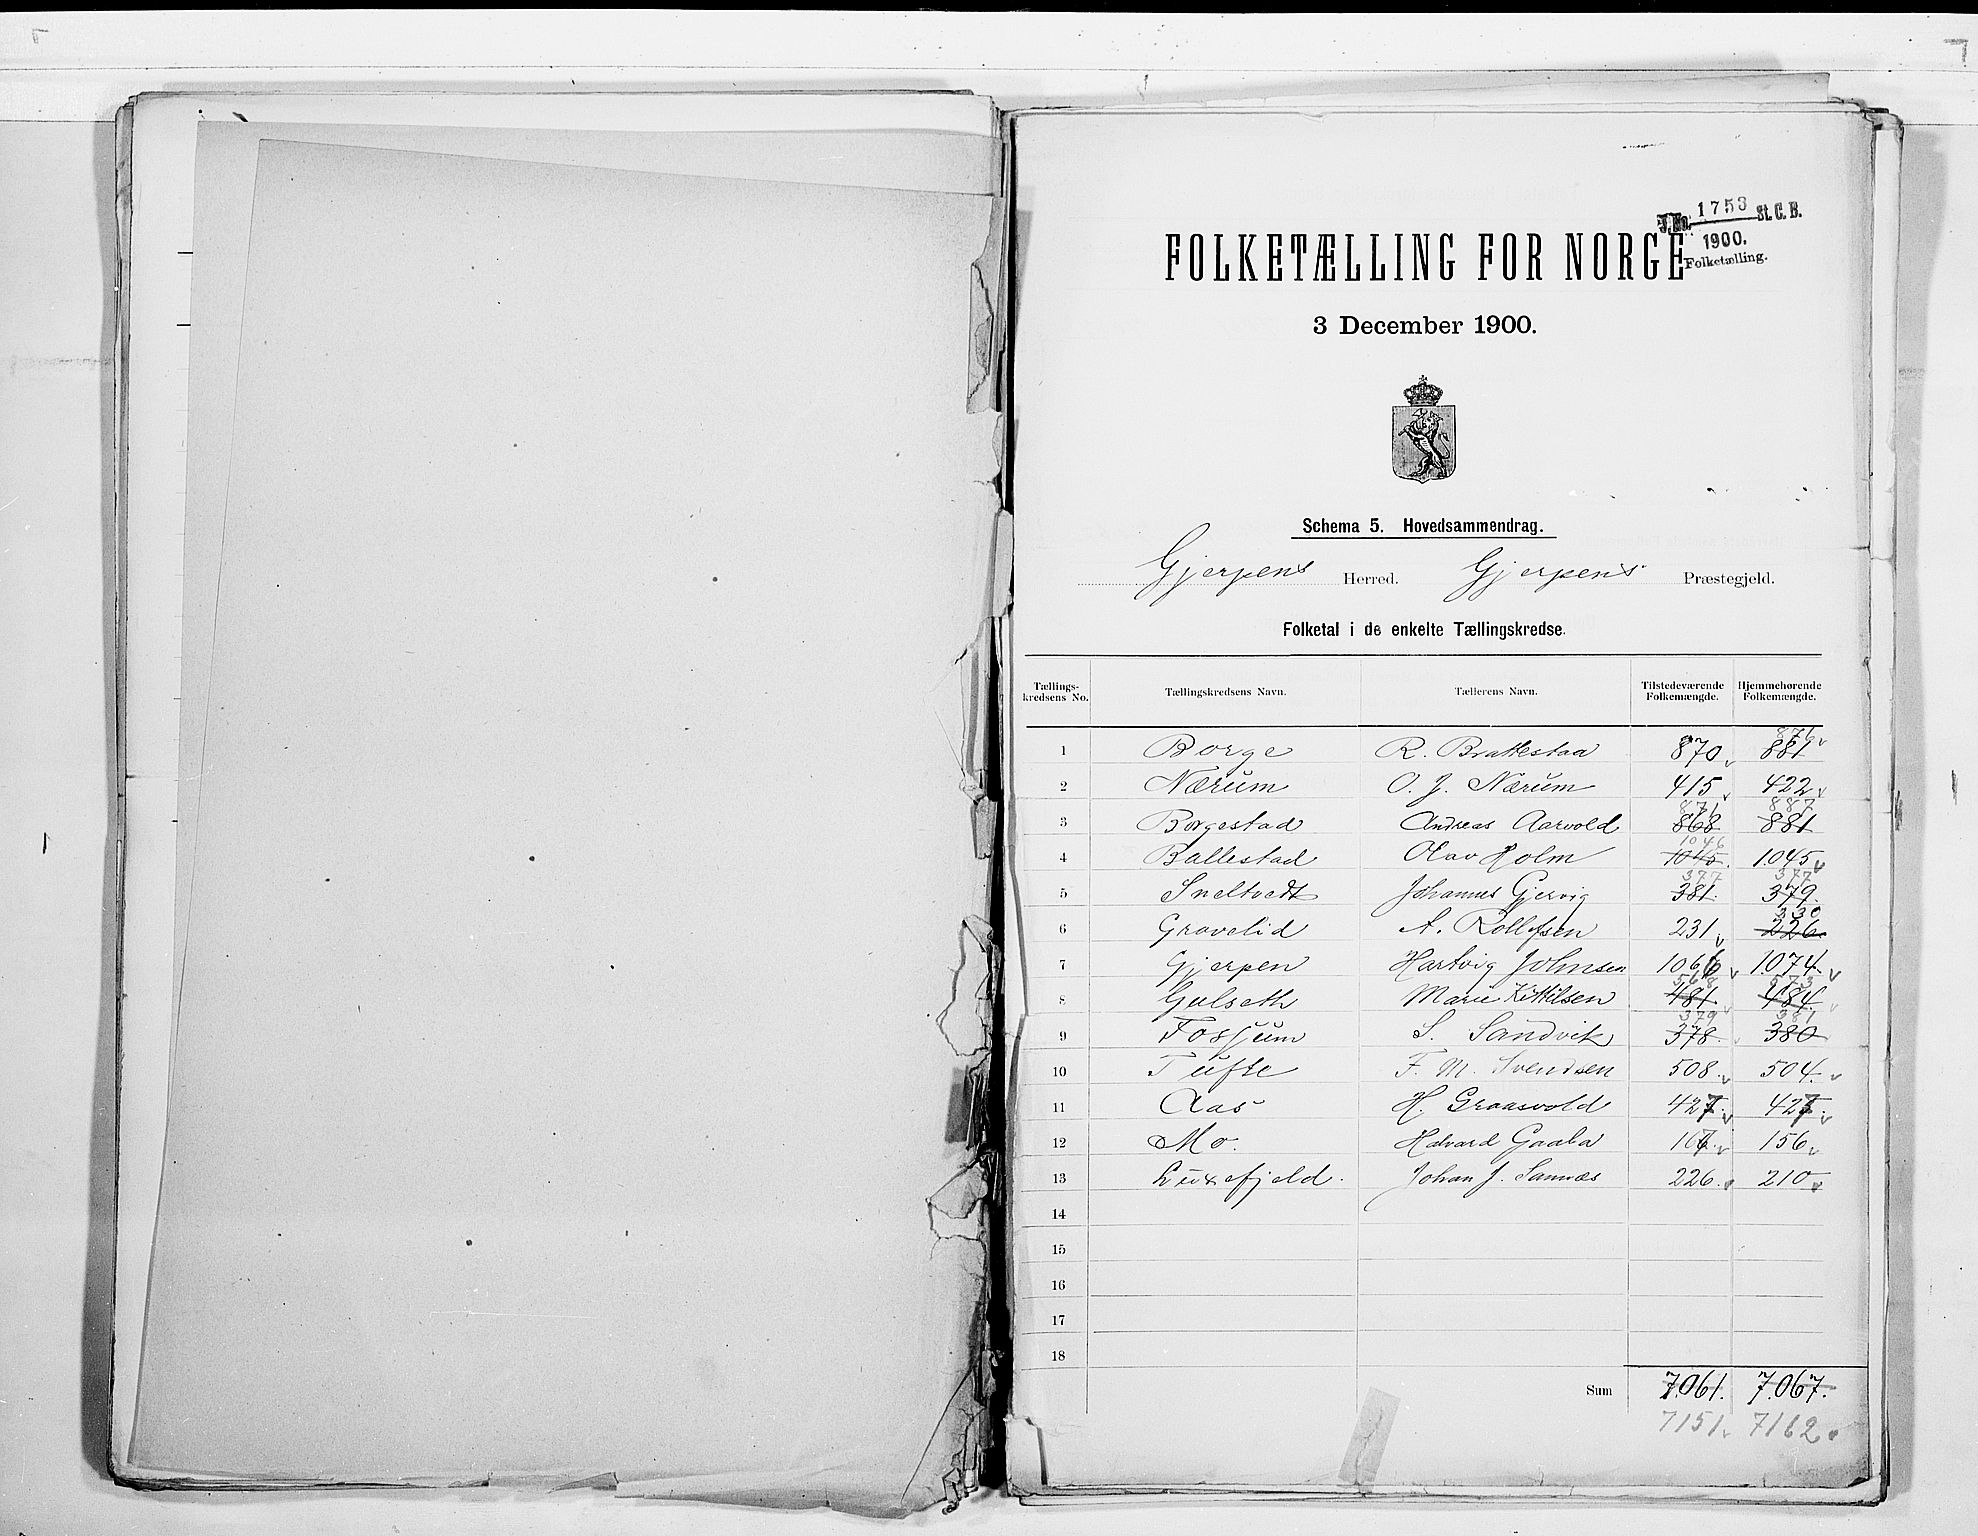 J. No. 1753 St. C. B.
1900.
Folketælling.
FOLKETÆLLING FOR NORGE
3 December 1900.
Schema 5. Hovedsammendrag.
Gjerpens Herred. Gjerpens Præstegjeld.
Folketal i de enkelte Tællingskredse.
Tællings-kredsens No. Tællingskredsens Navn. Tællerens Navn. Tilstedeværende Folkemængde. Hjemmehørende Folkemængde.
876
1 Borge R. Brattestaa 870 881
2 Nærum O. J. Nærum 415 422
871 887
3 Borgestad Andreas Aarvold 868 881
1046
4 Ballestad Olav Holm 1045. 1045
377 377
5 Sneltvedt Johannes Gjervig 381. 379.
230
6 Gravelid A. Rollefsen 231 226.
7 Gjerpen Hartvig Johnsen 1066 1074.
568 573
8 Gulseth Marie Kittilsen 481 484
379 381
9 Fossum S. Sandvik 378. 380
10 Tufte F. M. Svendsen 508. 504.
11 Aas H. Graasvold 427. 427.
12 Mo. Halvard Gaala 156
13 Luxefjeld. Johan J. Sannæs 226. 210
14
15
16
17
18
Sum 7.061. 7.067.
7151 7162